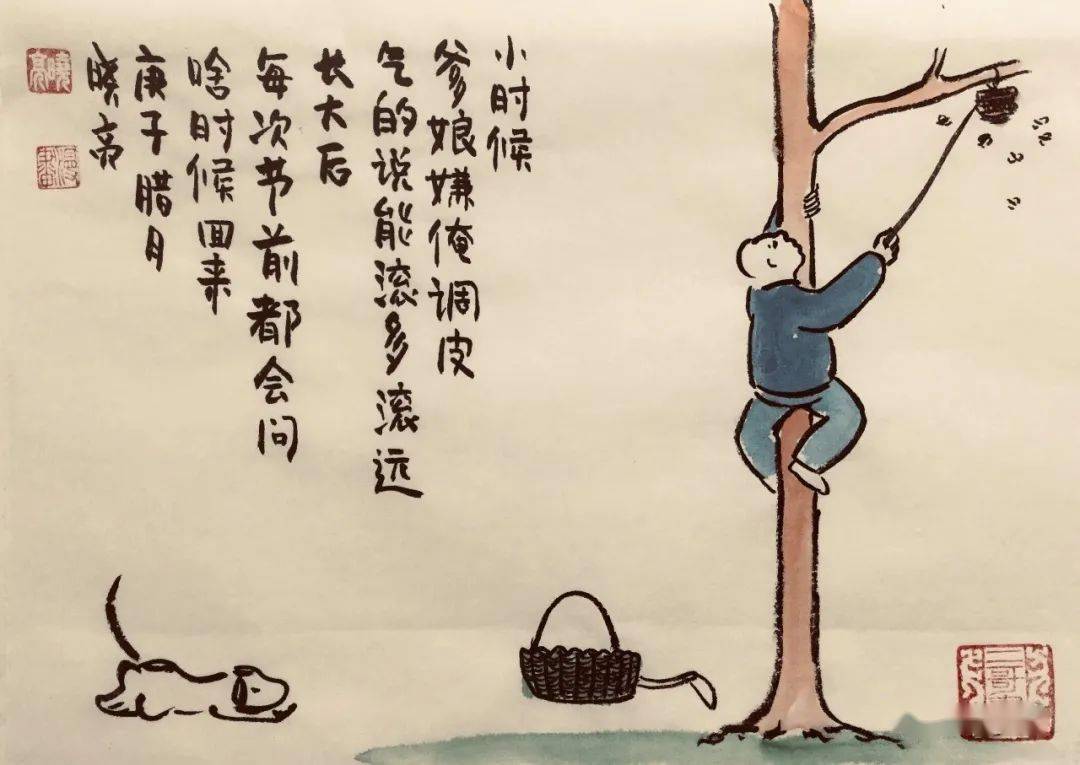 小时候
爹娘嫌俺调皮
气的说能滚多滚远
长大后
每次节前都会问
啥时候回来
庚子腊月
晓亮